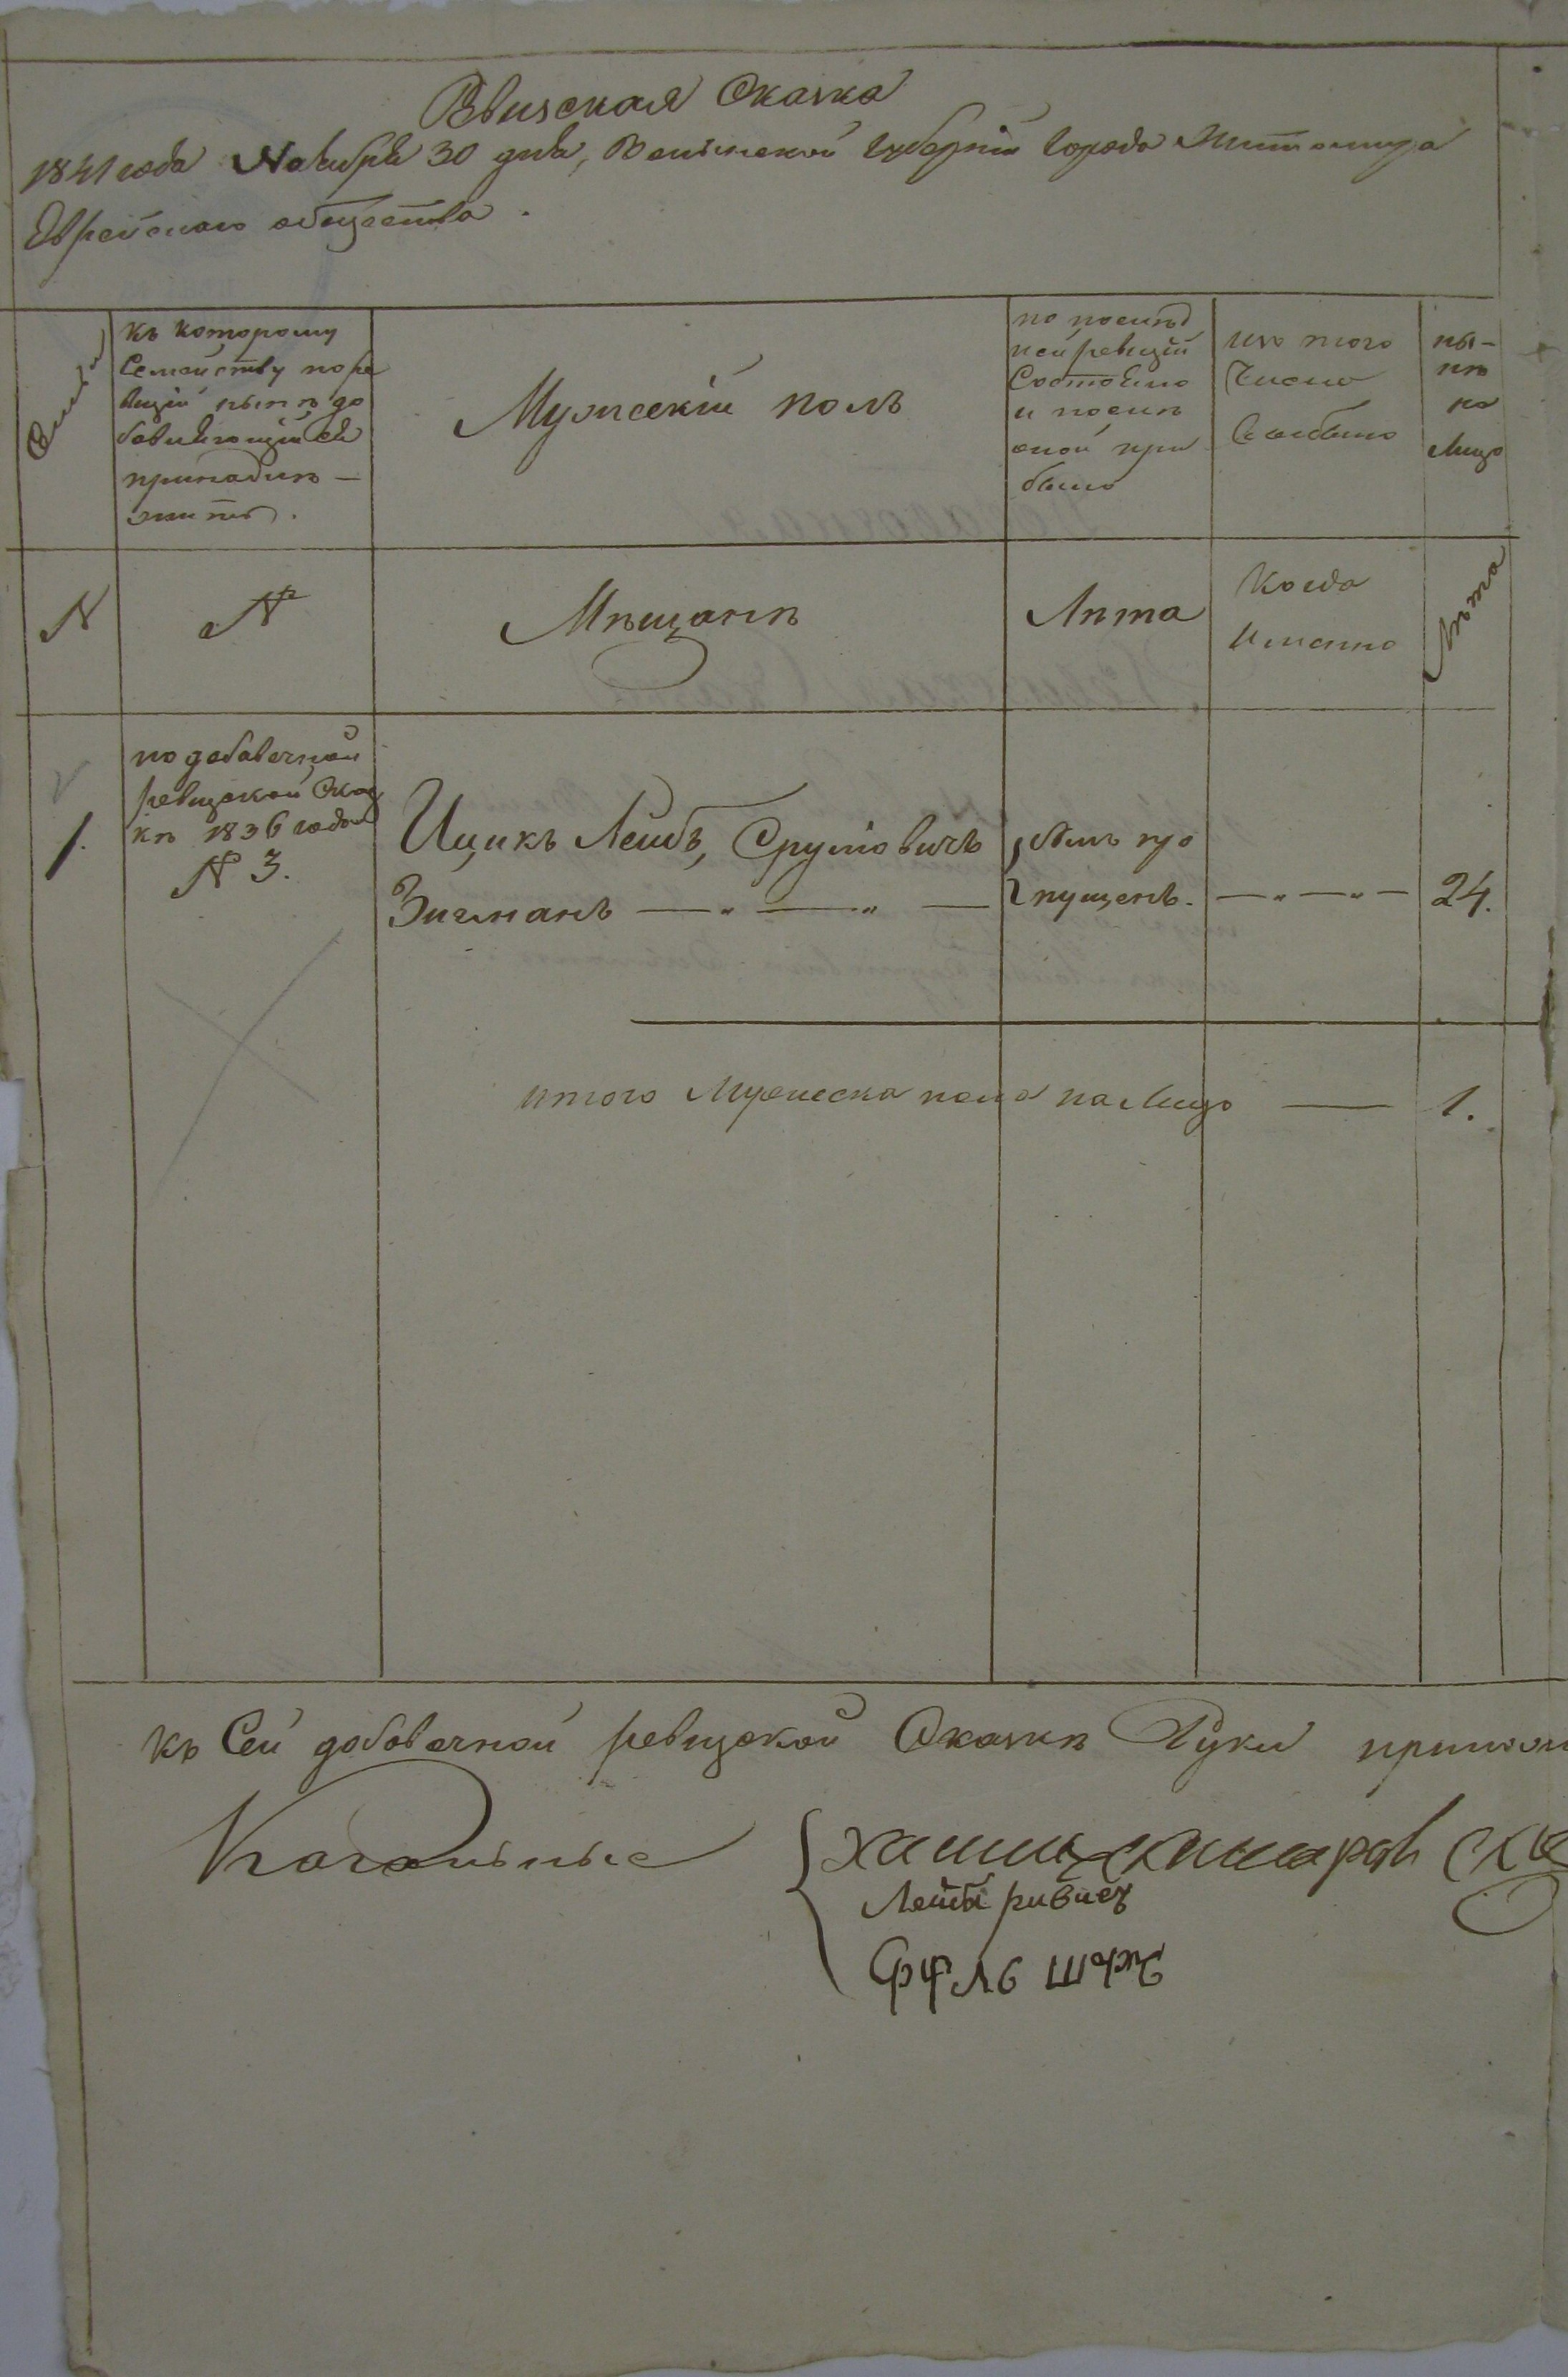 Ревизская Сказка
1841 года Ноября 30 дня, Волынской Губерніи Города Житомира
Еврейскаго общества.
Семьи
къ которому
Семейству по ре
визіи нынѣ до
бавляющійся
принадлѣ—
житъ.
Мужескій полъ
по послѣд
ней ревизіи
Состояло
и послѣ
оной при
было
изъ того
Числа
выбыло
ны-
нѣ
на
Лицо
N
N
Мѣщанѣ
Лѣта
Когда
Именно
Лѣта
1.
по добавочной
ревизской Сказ
кѣ 1836 года
N 3.
Ицикъ Лейбъ, Сруліовичъ
Зигманъ — „ — „ —
былъ про
пущенъ.
— „ — „ —
24.
итого Мужеска пола на Лицо — 1.
къ Сей добавочной ревизской Сказкѣ Руки
Кагальные
Лейба